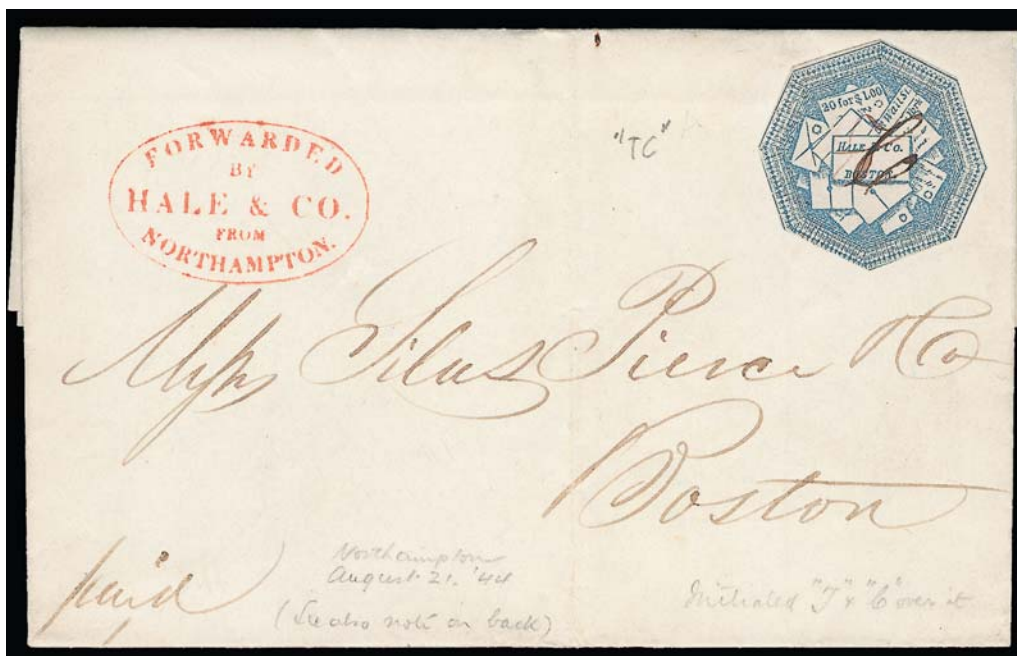 FORWARDED
BY
HALE & CO.
FROM
NORTHAMPTON.
"TC"
20 for $1.00
HALE & CO.
BOSTON.
Mess Silas Pierce & Co
Boston
paid
Northampton
August 21. '44
(See also note on back)
Initialed "J" & "C" over it